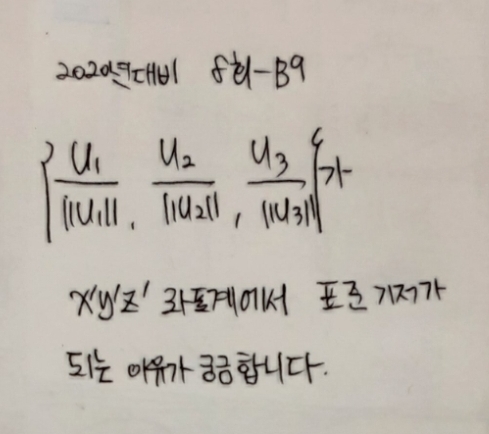 2020년대비 8회-B9
{ U₁/||U₁||, U₂/||U₂||, U₃/||U₃|| }가
x'y'z' 좌표계에서 표준기저가
되는 이유가 궁금합니다.